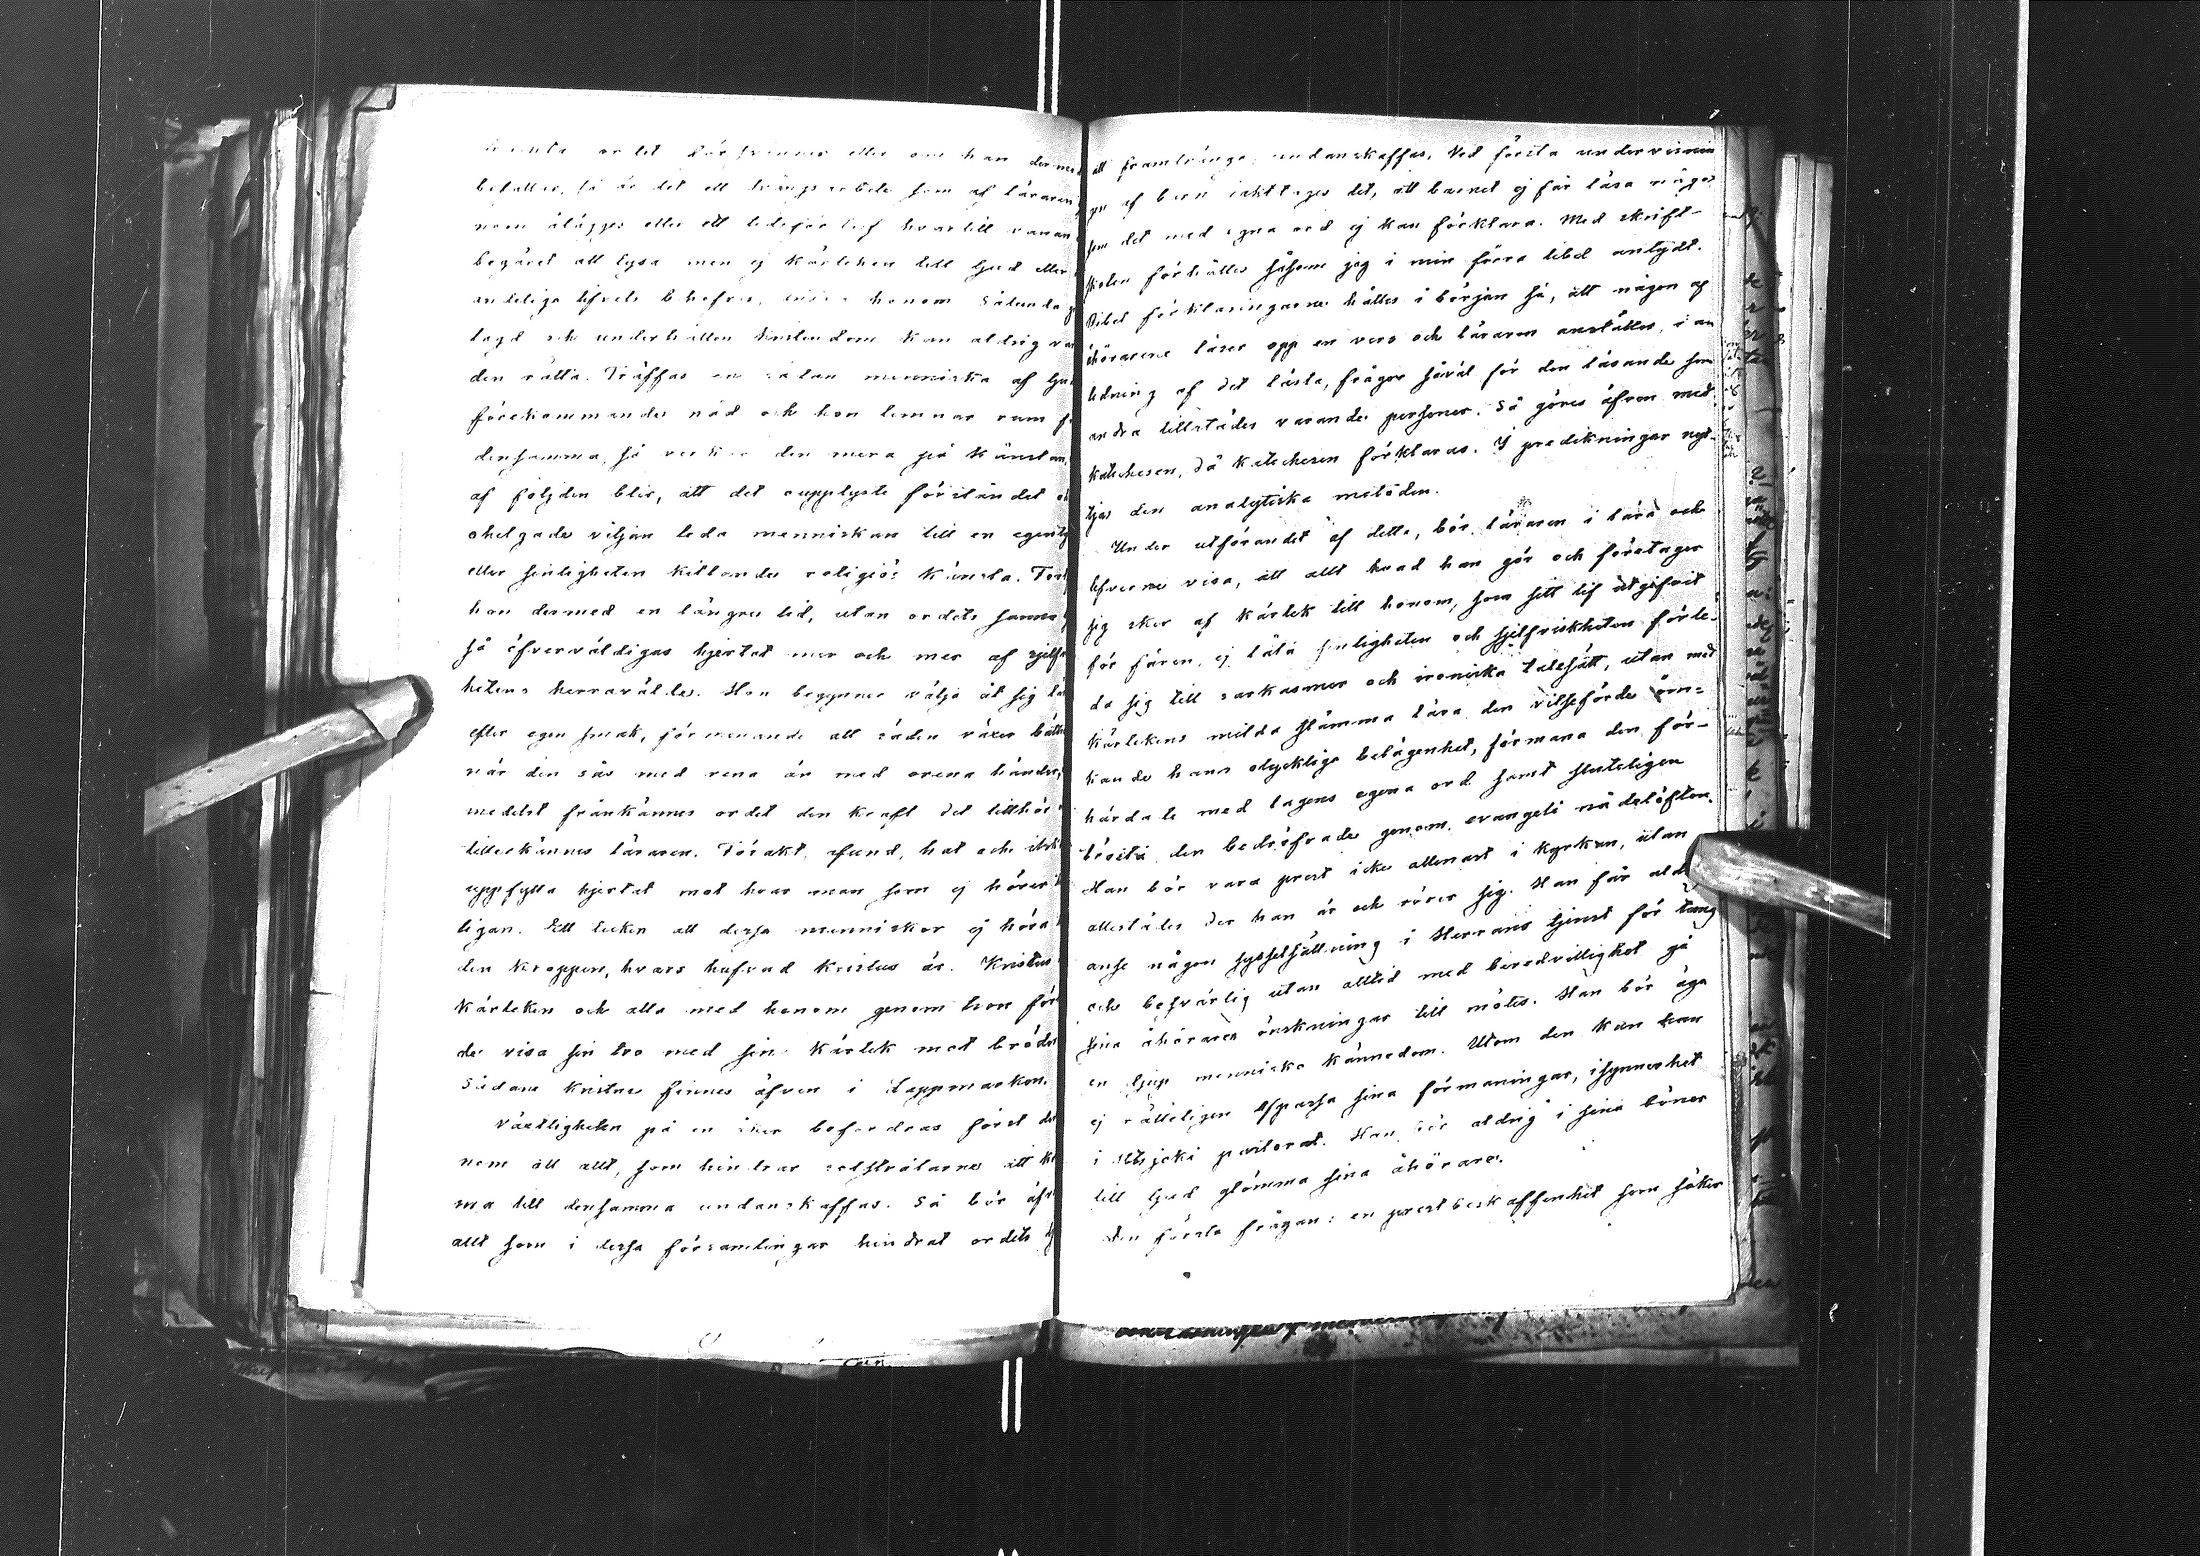 ordet der finnes eller om han dermed
befattes, så är det ett tvångsarbete som af läraren
nom ålägges eller ett tidsfördrif hvartill vanan
begäret att lysa men ej kärleken till Gud eller
andeliga lifvets behof honom Sålunda
lagd och underhållen kristendom kan aldrig va
den rätta. Träffas en sådan menniska af Gu
förekommande nåd och hon lemnar rum f
densamma, så verkar den mera på känslan,
af följden blir, att det oupplyste förståndet o
ohelgade viljan leda menniskan till en egent
eller sinligheten kittlande religiös känsla. Fort
hon dermed en längre tid, utan ordets sanna
så öfverväldigas hjertat mer och mer af sjelf
hetens herravälde. Hon begynner välja åt sig lä
efter egen smak, förmenande att säden växer bätt
när den sås med rena än med orena händer,
medelst frånkännes ordet den kraft det tillhör
tillerkännes läraren. Förakt, afund, hat och
uppfylla hjertat mot hvar man som ej hörer
ligan. Ett tecken att dessa menniskor ej höra
den kroppen, hvars hufvud Kristus är. Kristus
Kärleken och alla med honom genom tron för
de visa sin tro med sin kärlek mot bröder
Sådane kristne finnes äfven i Lappmarken.
Växtligheten på en åker befordras först de
nom att allt, som hindrar solstrålarne att ko
ma till densamma undanskaffas. Så bör äfv
allt som i dessa församlingar hindrat ordets
att framtränga, undanskaffas. Ved första undervisnin
gen af barn iakttages det, att barnet ej får läsa något
som det med egna ord ej kan förklara. Med skrift-
skolen förhålles såsom jag i min förra titel antydt.
Bibel förklaringarne hålles i början så, att någon af
åhörarene läser opp en vers och läraren anställer, i an
ledning af det lästa, frågor såväl för den läsande som
andra tillstädes varande personer. Så göres äfven med
katechesen, då katechesen förklaras. I predikningar nytt-
tjas den analytiska metoden.
Under utförandet af detta, bör läraren i lära och
lefverne visa, att allt hvad han gör och företager
sig sker af kärlek till honom, som sitt lif utgifvit
för fåren, ej låta sinligheten och sjelfviskheten förle-
da sig till sarkasmer och ironiska talesätt, utan med
kärlekens milda stämma lära den vilseförde öm-
kande hans olyckliga belägenhet, förmana den för-
härdade med lagens egena ord samt slutligen
trösta den bedröfvade genom evangelii nådelöften.
Han bör vara prest icke allenast i kyrkan, utan
allestädes der han är och rörer sig. Han får ald
anse någon sysselsättning i Herrans tjenst för tung
och besvärlig utan alltid med beredvillighet gå
sina åhörares önskningar till mötes. Han bör äga
en djup mennisko kännedom. Utom den kan han
ej rätteligen afpassa sina förmaningar, isynnerhet
i Utsjoki pastorat. Han bör aldrig i sina böner
till Gud glömma sina åhörare.
Den första frågan: en prest beskaffenhet som söker